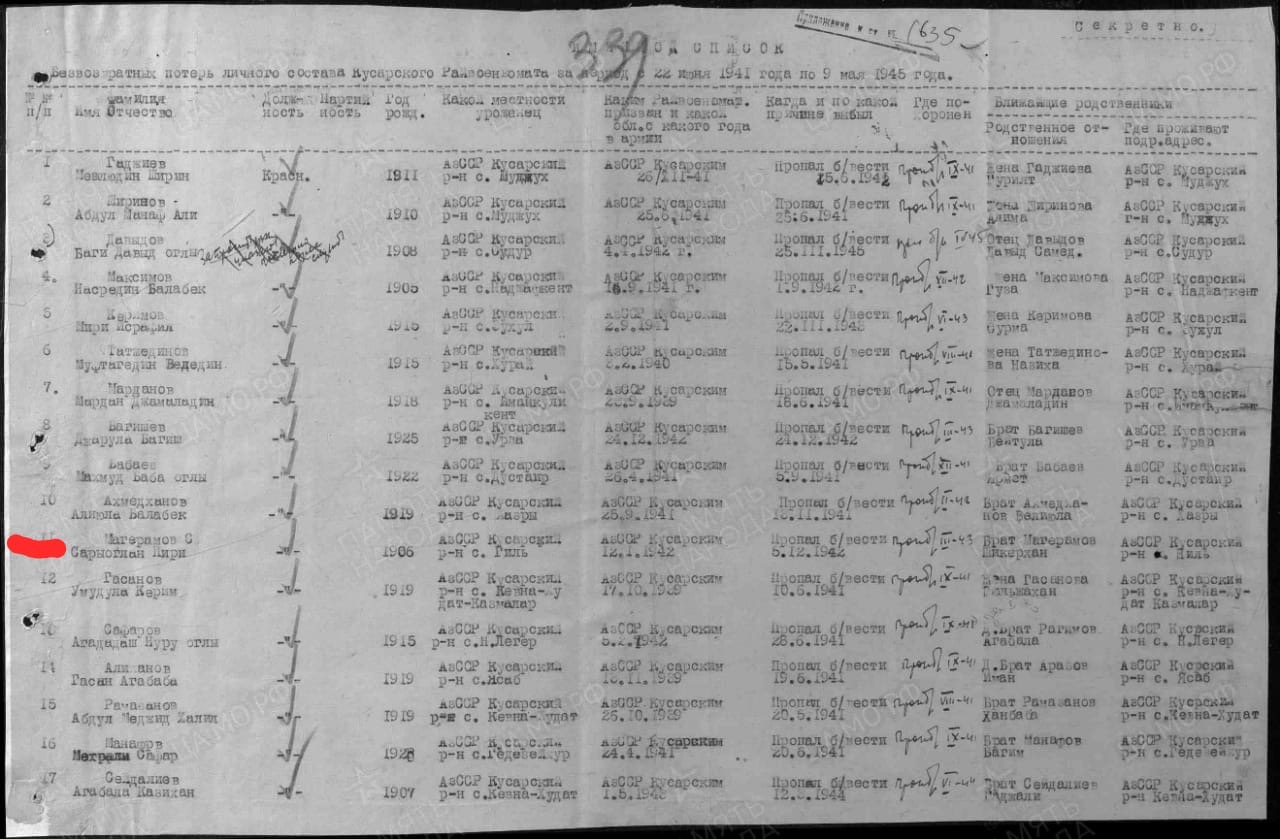 Продолжение к ст вх 1635
Секретно.
339
ИМЕННОЙ СПИСОК
Безвозвратных потерь личного состава Кусарского Райвоенкомата за период с 22 июня 1941 года по 9 мая 1945 года.
№ № Фамилия Долж- Партий Год Какой местности Каким Райвоеномат. Кагда и по какой Где по- Ближайшие родственники
п/п Имя Отчество ность ность рожд. уроженец призван и какой причине выбыл хоронен
обл.с какого года Родственное от- Где проживают
в армии ношения подр.адрес.
1 Гаджиев АзССР Кусарский АзССР Кусарским Пропал б/вести IX-41 Жена Гаджиева АзССР Кусарский
Мевлюдин Ширин Красн. 1911 р-н с. Муджух 26/III-41 р-н с. Муджух
2 Ширинов - АзССР Кусарский АзССР Кусарским Пропал б/вести IX-41 Жена Ширинова АзССР Кусарский
Абдул Манаф Али -"- 1910 р-н с.Муджух 25.6.1941 25.6.1941 Алима р-н с. Муджух
3 Давыдов АзССР Кусарский АзССР Кусарским Пропал б/вести Отец Давыдов АзССР Кусарский
Баги Давыд оглы 1908 р-н с.Судур 4.4.1942 г. 25.III.1945 Давыд Самед. р-н с.Судур
4. Максимов АзССР Кусарски АзССР Кусарским Пропал б/вести VII-42 Жена Максимова АзССР Кусарский
Насредин Балабек -"- 1905 р-н с.Наджафкент .9.1941 г. 1.9.1942 г. Гуза р-н с. Наджафкент
5 Керимов АзССР Кусарски АзССР Кусарским Пропал б/вести VI-43 Жена Керимова АзССР Кусарский
Пири Исрафил -"- 1915 р-н с. 2.9.1941 22.III.1943 Сурма р-н с.
6 Татжединов АзССР Кусарский АзССР Кусарским Пропал б/вести VIII-41 Жена Татжедино- АзССР Кусарский
Муфтагедин Веледин -"- 1915 р-н с.Хурай .2.1940 15.5.1941 ва Назиха р-н с. Хурай
7. Марданов АзССР Кусарский АзССР Кусарским Пропал б/вести IX-41 Отец Марданов АзССР Кусарский
Мардан Джамаладин -"- 1918 р-н с. Иманкули .9.1939 18.6.1941 Джамаладин р-н с.
кент
8 Багишев АзССР Кусарский АзССР Кусарским Пропал б/вести III-43 Брат Багишев АзССР Кусарский
Джарула Багиш -"- 1925 р-н с.Урва 24.12.1942 24.12.1942 Бейтула р-н с. Урва
9 Бабаев АзССР Кусарский АзССР Кусарским Пропал б/вести XII-41 Брат Бабаев АзССР Кусарский
Махмуд Баба оглы -"- 1922 р-н с.Дустаир 26.4.1941 5.9.1941 р-н с.Дустаир
10 Ахмедханов АзССР Кусарский АзССР Кусарским Пропал б/вести II-42 Брат Ахмедха- АзССР Кусарский
Алиюла Балабек -"- 1919 р-н с. Хазры 25.9.1941 .11.1941 нов Велиюла р-н с. Хазры
11 Магерамов С АзССР Кусарский АзССР Кусарским Пропал б/вести III-43 Брат Магерамов АзССР Кусарский
Сарыоглан Пири -"- 1906 р-н с. Гиль 12.1.1942 5.12.1942 Шикерхан р-н с.
12 Гасанов АзССР Кусарский АзССР Кусарским Пропал б/вести IX-41 Жена Гасанова АзССР Кусарский
Умудула Керим -"- 1919 р-н с. Кевна-Ху 17.10.1939 10.6.1941 Гюльжахан р-н с. Кевна-Ху-
дат-Казмалар дат Казмалар
13 Сафаров АзССР Кусарский АзССР Кусарским Пропал б/вести Д.Брат Рагимов АзССР Кусарский
Агададаш Нуру оглы -"- 1915 р-н с.Н.Легер 5.2.1942 28.6.1941 Агабала р-н с. Н.Легер
14 Алиханов АзССР Кусарский АзССР Кусарским Пропал б/вести IX-41 Д.Брат Арабов АзССР Кусарский
Гасан Агабаба -"- 1919 р-н с.Ясаб .11.1939 19.6.1941 Иман р-н с. Ясаб
15 Рамазанов АзССР Кусарский АзССР Кусарским Пропал б/вести VIII-41 Брат Рамазанов АзССР Кусарский
Абдул Меджид Халил -"- 1919 р-н с. Кевна-Худат 26.10.1939 20.5.1941 Ханбаба р-н с.Кевна-Худат
16 Манафов АзССР Кусарский АзССР Кусарским Пропал б/вести IX-41 Брат Манафов АзССР Кусарский
Мехрали Сафар -"- р-н с. 24.4.1941 20.6.1941 Багим р-н с.
17 Сейдалиев АзССР Кусарский АзССР Кусарским Пропал б/вести Брат Сейдалиев АзССР Кусарский
Агабала Казихан -"- 1907 р-н с.Кевна-Худат 1.5.194 12.3.1944 Гаджали р-н Кевна-Худат